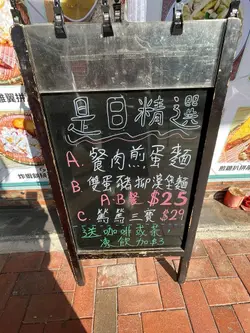 是日精選
A. 餐肉煎蛋麵
B 雙蛋豬柳漢堡麵
A.B餐 $25
C. 鴛鴦三寶 $29
送咖啡或茶
凍飲加$3